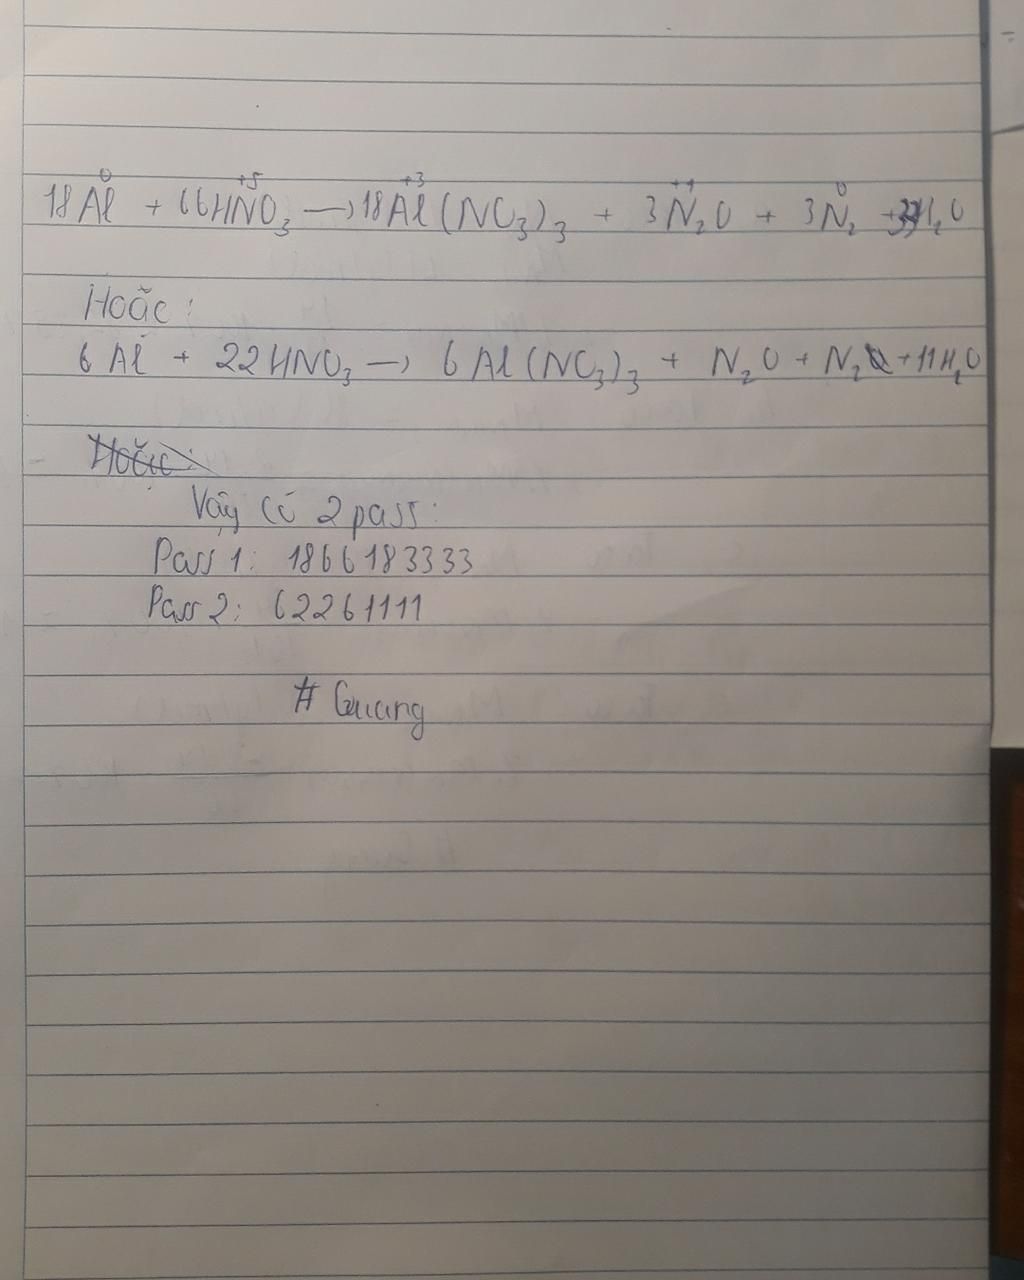 18Al⁰ + 66HN⁺⁵O₃ → 18Al⁺³(NO₃)₃ + 3N⁺¹₂O + 3N⁰₂ + 33H₂O
Hoặc:
6Al + 22HNO₃ → 6Al(NO₃)₃ + N₂O + N₂ + 11H₂O
Hoặc:
Vậy có 2 pass:
Pass 1: 1866183333
Pass 2: 62261111
# Quang